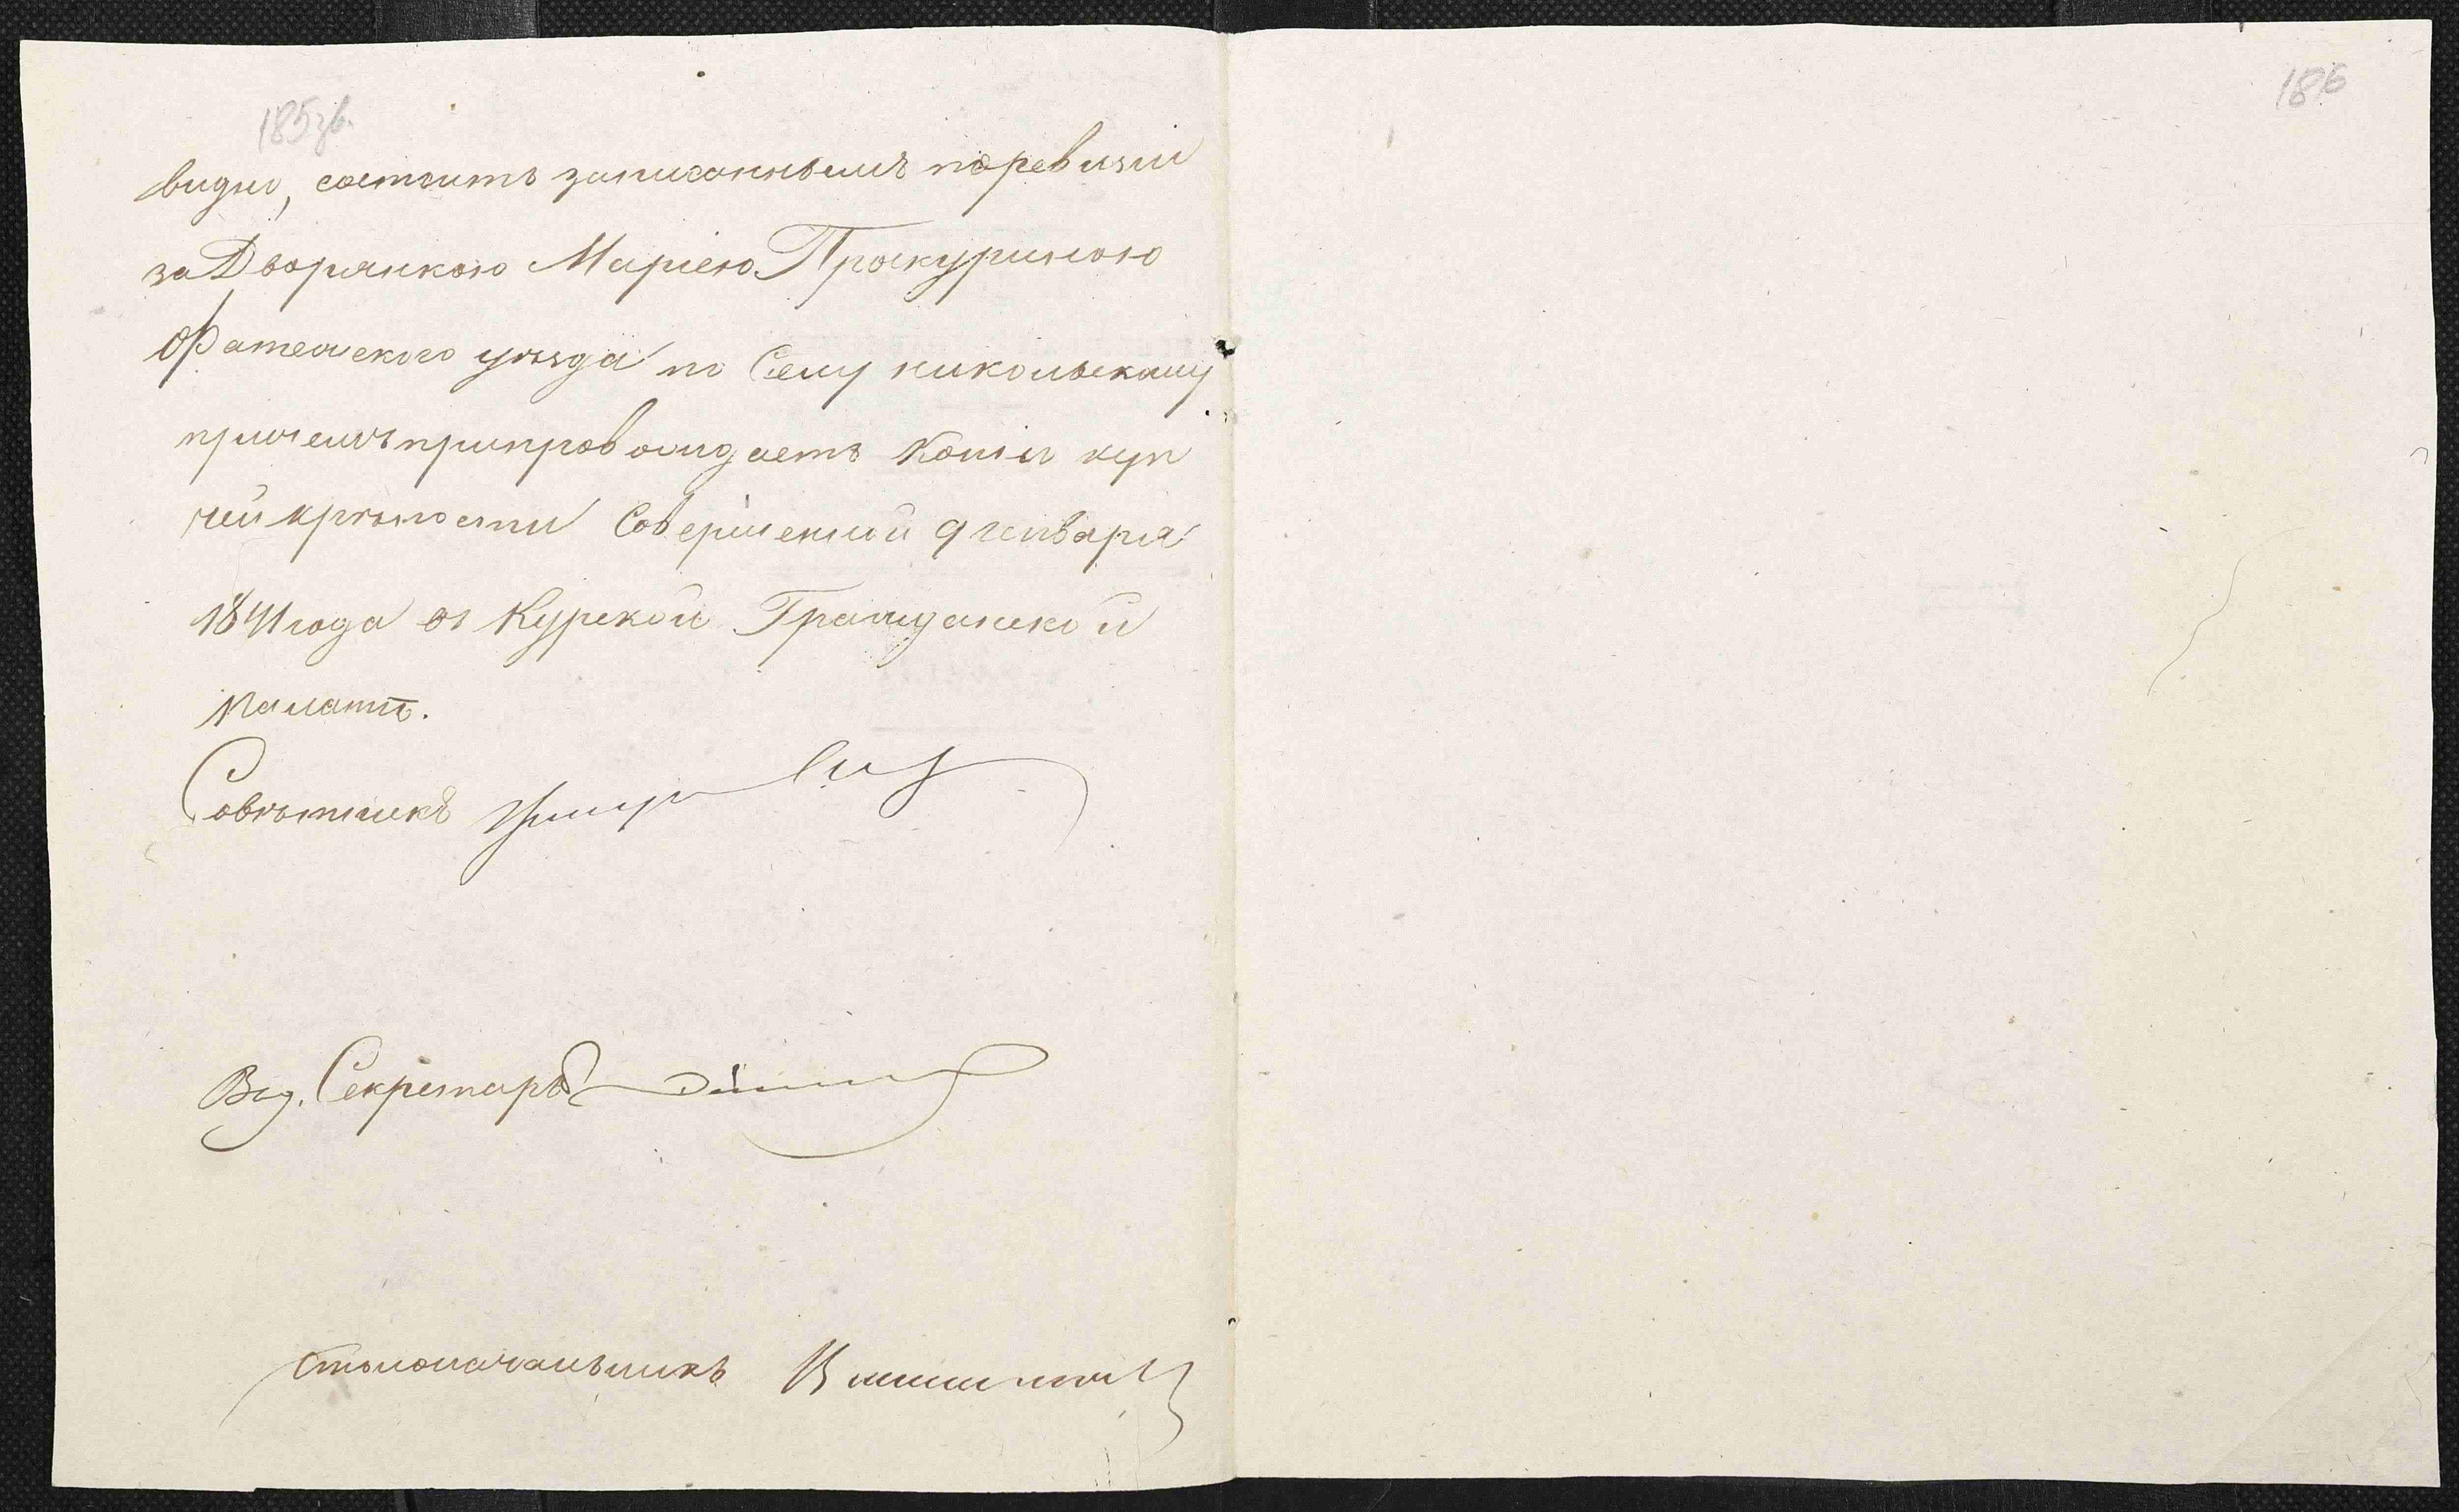 185об.
186
видно, состоитъ записаннымъ поревизіи
за Дворянкою Маріею Проскуриною
Фатежского уѣзда по Селу никольскому
причемъ припровождаетъ Копіи куп
чей крѣпости Совершенной 9 генваря
1841 года въ Курской Гражданской
палатѣ.
Совѣтникъ
Секретарь
Столоначальникъ